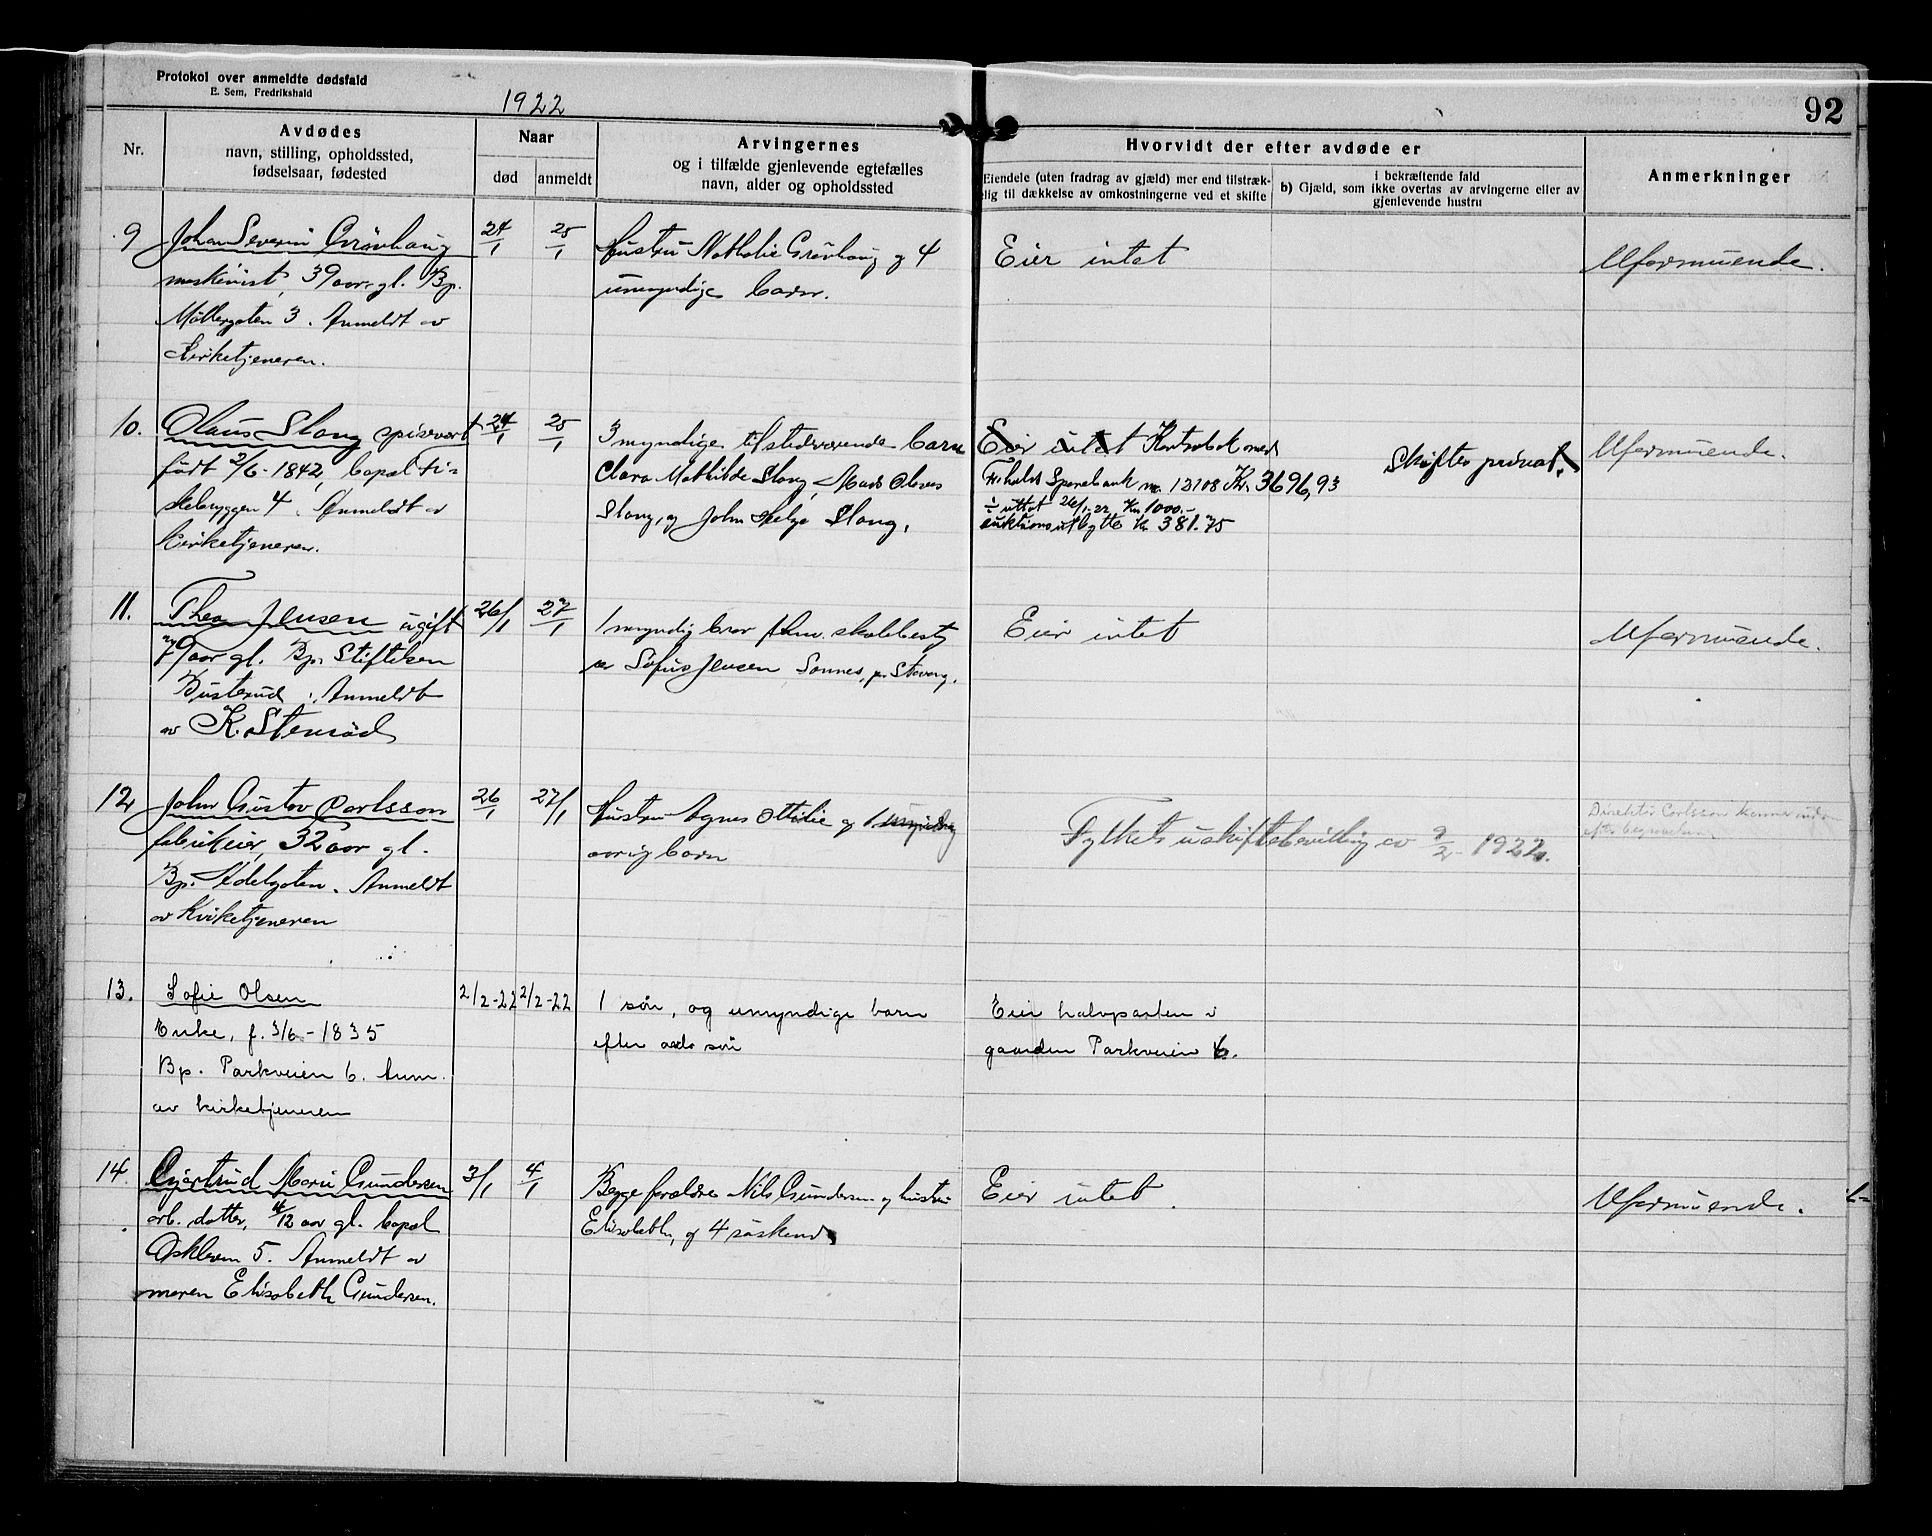 Protokol over anmeldte dødsfald
E. Sem, Fredrikshald
1922
92
Nr.
Avdødes
navn, stilling, opholdssted,
fødselsaar, fødested
Naar
død
anmeldt
Arvingernes
og i tilfælde gjenlevende egtefælles
navn, alder og opholdssted
Hvorvidt der efter avdøde er
Eiendele (uten fradrag av gjæld) mer end tilstræk-
elig til dækkelse av omkostningerne ved et skifte
i bekræftende fald
b) Gjæld, som ikke overtas av arvingerne eller av
gjenlevende hustru
Anmerkninger
9
Johan Severin Grövhaug
maskinist, 39 aar gl. Bp.
Möllergaten 3. Anmeldt av
Kirketjeneren.
24/1
25/1
Hustru Nathalie Grövhaug og 4
umyndige barn.
Eier intet
Uformuende.
10.
Olaus Slang spisevært
født 2/6-1842, bopæl Fi-
skebryggen 4. Anmeldt av
kirketjeneren.
24/1
25/1
3 myndige tilstedeværende barn
Clara Mathilde Slang, Mads Olaves
Slang, og John Helge Slang.
Eier intet Kontrabok med
Fr.halds Sparebank no. 13108 Kr. 3696,93
÷ uttat 26/1-22 Kr. 1000.-
auktionsutbytte Kr 381.75
Skiftes privat.
Uformuende.
11.
Thea Jensen ugift
79 aar gl. Bp. Stiftelsen
Busterud. Anmeldt
av K. Stenröd
26/1
27/1
1 myndig bror fhv. skolebesty
rer Sofus Jensen Sonnes, pr. Stavang.
Eier intet
Uformuende.
12
John Gustav Carlsson
fabrikeier, 32 aar gl.
Bp. Adelgaten. Anmeldt
av Kirketjeneren
26/1
27/1
Hustru Agnes Ottilie og 1 umyndig
aarig barn
Fylkets uskiftebevilling av 9/2-1922.
Direktör Carlsson kommer indom
efter begravelsen
13.
Sofie Olsen
Enke, f. 3/6-1835
Bp. Parkveien 6. Anm.
av kirketjeneren
2/2-22
2/2-22
1 sön, og umyndige barn
efter död sön
Eier halvparten i
gaarden Parkveien 6.
14.
Gjertrud Marie Gundersen
arb. datter, 4/12 aar gl. bopæl
Oskleven 5. Anmeldt av
moren Elisabeth Gundersen.
3/1
4/1
Begge forældre Nils Gundersen og hustru
Elisabeth, og 4 söskend
Eier intet.
Uformuende.